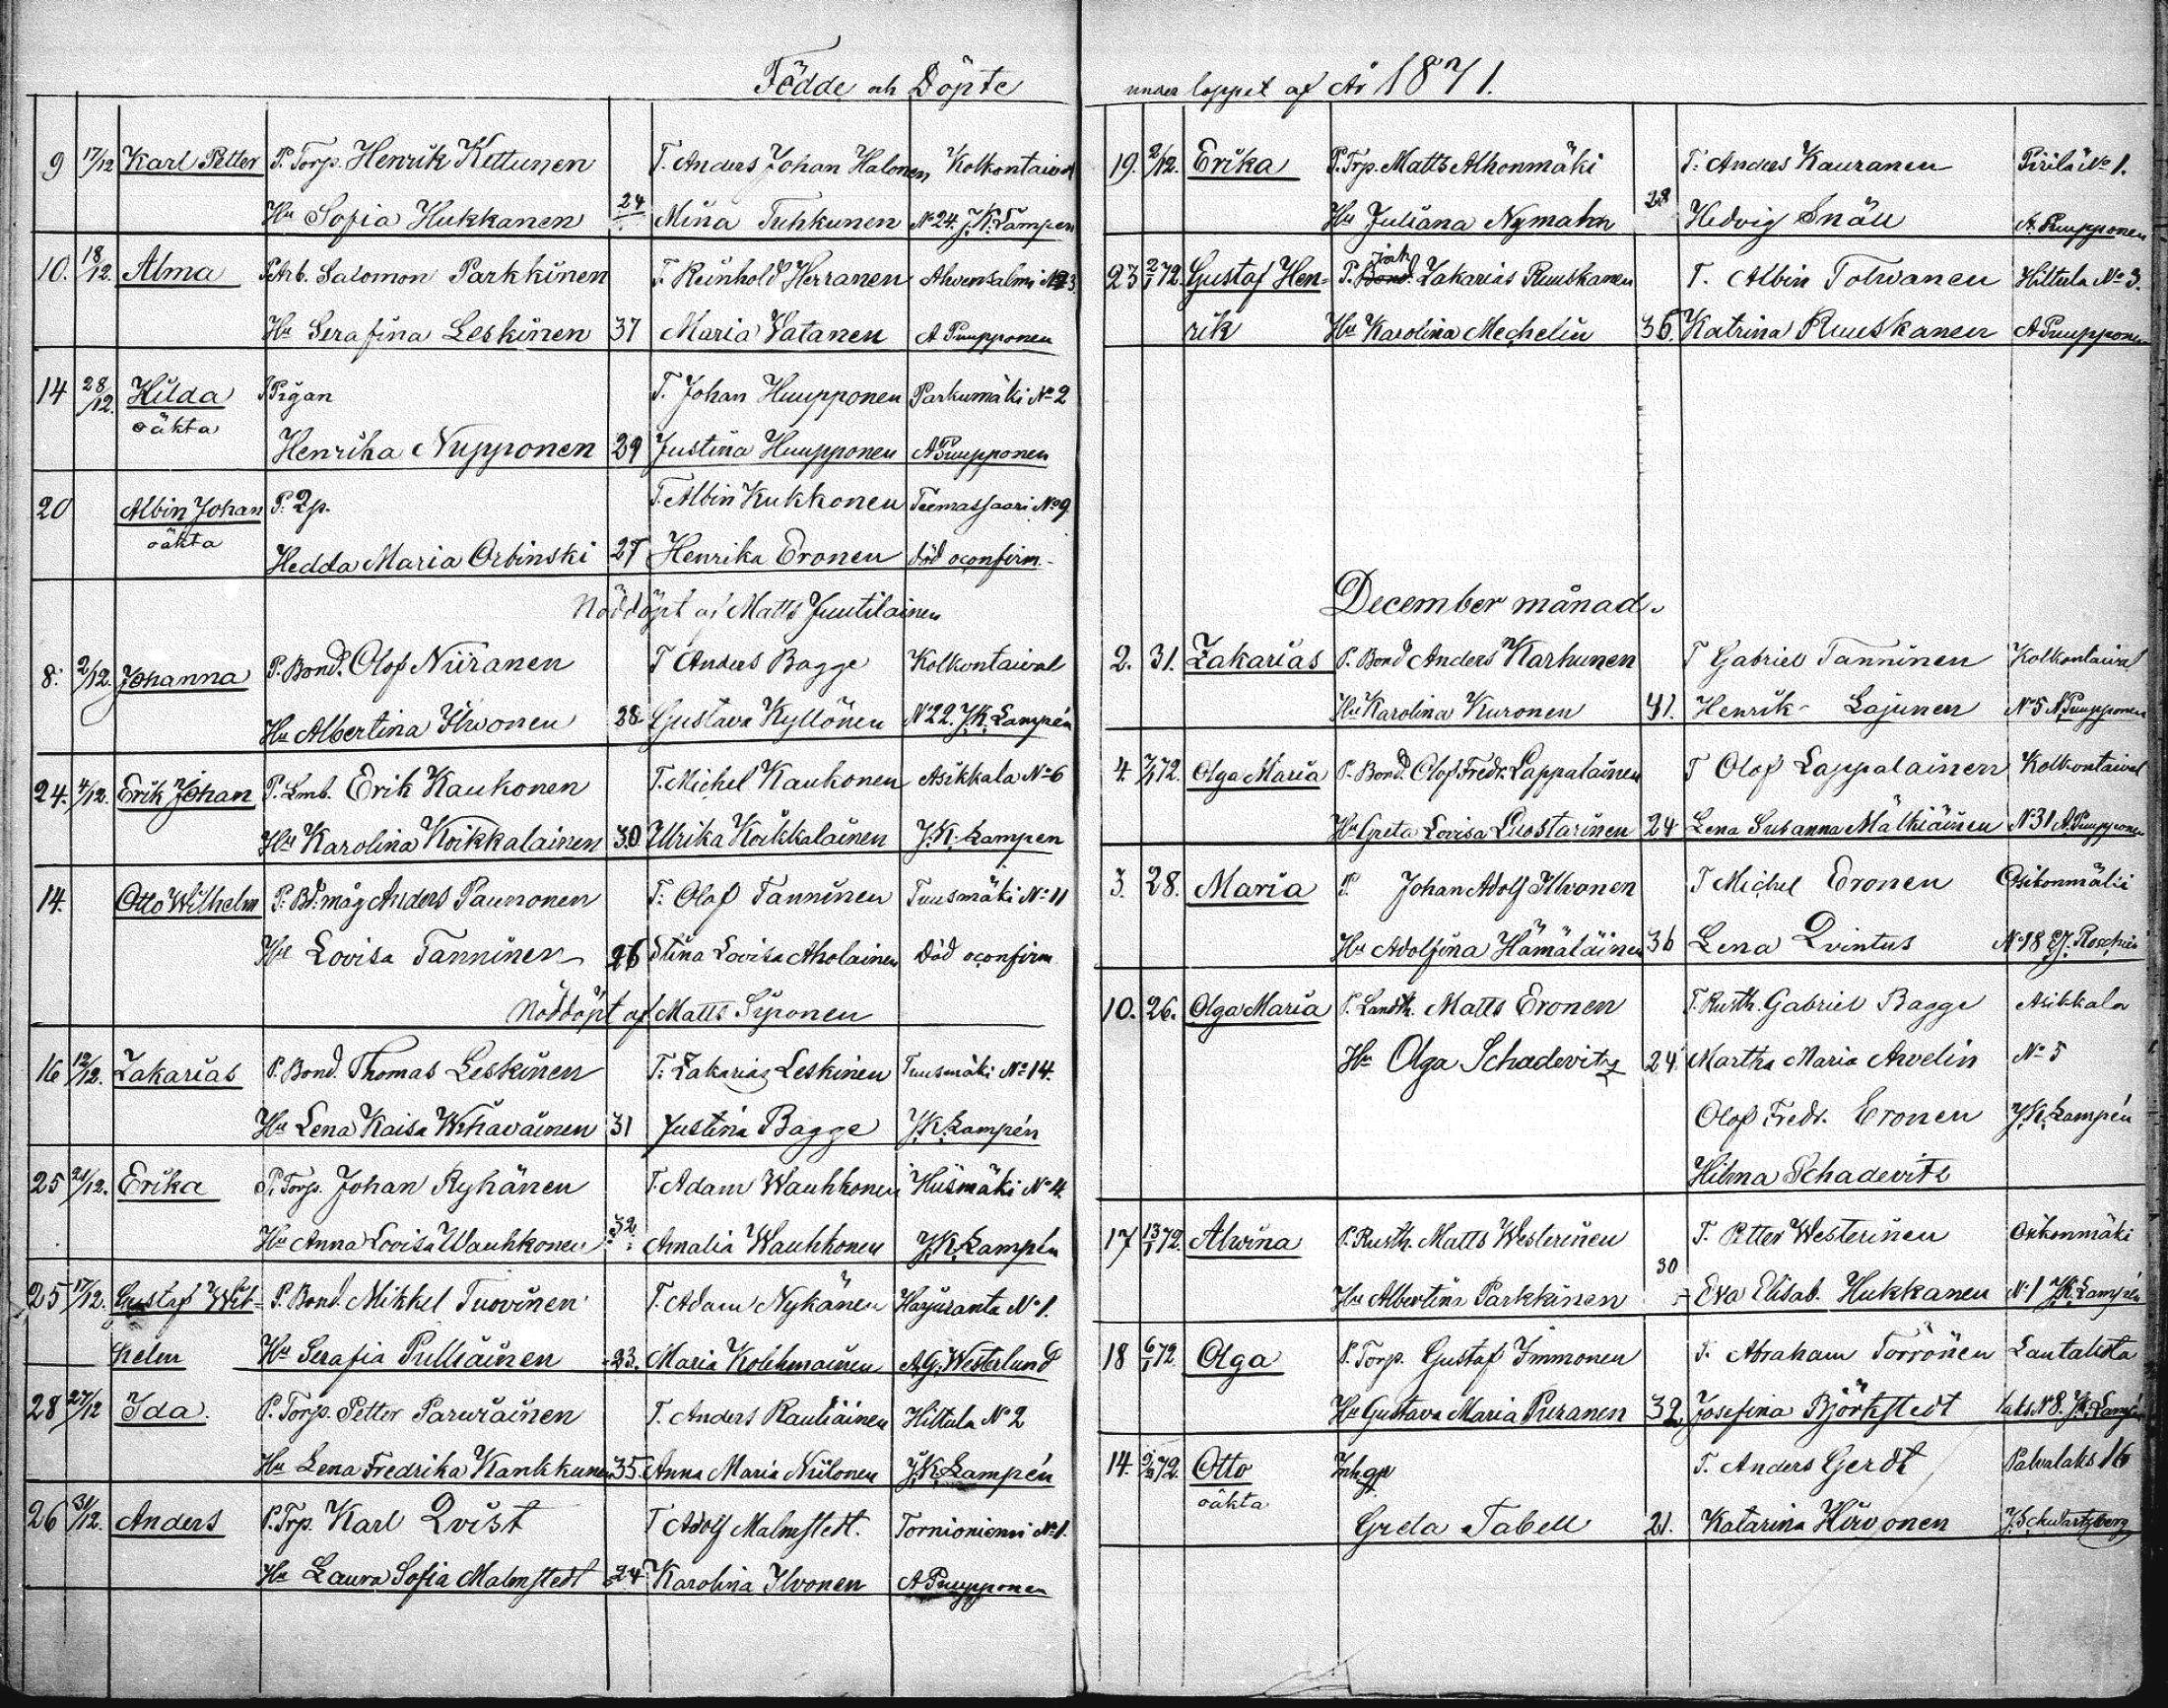 Födde och Döpte
9 17/12 Karl Petter P. Torp. Henrik Kettunen T. Anders Johan Halonen Kolkontaival
Hu Sofia Hukkanen 24 Mina Tuhkunen No 24. J.K. Lampen
10. 18/12. Alma P. Arb. Salomon Parkkinen T. Reinhold Herranen Ahvensalmi
Hu Serafina Leskinen 37 Maria Watanen A Puupponen
14 28/12. Hilda P Pigan T. Johan Huupponen Parkumäki No 2
oäkta
Henrika Nupponen 29 Justina Huupponen A Puupponen
20 Albin Johan P. T. Albin Kukkonen Teemassaari No 9
oäkta
Hedda Maria Orbinski 27 Henrika Eronen död oconfirm.
Nöddöpt af Matts Juutilainen
8. 2/12. Johanna P. Bond. Olof Niiranen T Anders Bagge Kolkontaival
Hu Albertina Ilwonen 28 Gustava Kyllönen No 22. J.K. Lampén
24. 4/12. Erik Johan P. Lmb. Erik Kaukonen T. Michel Kaukonen Asikkala No 6
Hu Karolina Koikkalainen 30 Ulrika Koikkalainen J.K. Lampen
14. Otto Wilhelm P. Bd. måg Anders Paunonen T. Olof Tanninen Tuusmäki No 11
Hu Lovisa Tanninen 26 Stina Lovisa Aholainen Död oconfirm
Nöddöpt af Matts Siponen
16 12/12. Zakarias P. Bond. Thomas Leskinen T. Zakarias Leskinen Tuusmäki No 14.
Hu Lena Kaisa Wihavainen 31 Justina Bagge J.K. Lampén
25 21/12. Erika P. Torp. Johan Ryhänen T. Adam Wauhkonen Hiismäki No 4.
Hu Anna Lovisa Wauhkonen 32 Amalia Wauhkonen J.K. Lampén
25 17/12. Gustaf Wil- P. Bond. Mikkel Tuovinen T. Adam Nykänen Harjuranta No 1.
helm Hu Serafia Pulliainen 23. Maria Kolehmainen A.G. Westerlund
28 27/12 Ida. P. Torp. Petter Parwiainen T. Anders Rautiainen Hiltula No 2
Hu Lena Fredrika Kankkunen 35. Anna Maria Niilonen J.K. Lampén
26 31/12. Anders P. Trp. Karl Qvist T Adolf Malmstedt. Tornioniemi No 1.
Hu Laura Sofia Malmstedt 24 Karolina Ilvonen A Puupponen
under loppet af År 1871.
19. 2/12. Erika P. Trp. Matts Alhonmäki T. Anders Kauranen Pirilä No 1.
Hu Juliana Nymahn 28 Hedvig Snäll A. Puupponen
23 2/1 72. Gustaf Hen- P. Zakarias Ruuskanen T. Albin Tolwanen Hiltula No 3.
rik Hu Karolina Mechelin 36. Katrina Ruuskanen A Puupponen
December månad.
2. 31. Zakarias P. Bond Anders Karhunen T Gabriel Tanninen Kolkontaival
Hu Karolina Kuronen 41. Henrik Lajunen No 5 A. Puupponen
4. 7/1 72. Olga Maria P. Bond. Olof Fredr. Lappalainen T Olof Lappalainen Kolkontaival
Hu Greta Lovisa Luostarinen 24 Lena Susanna Mälkiäinen No 31 A. Puupponen
3. 28. Maria P. Johan Adolf Ilvonen T Michel Eronen Osikonmäki
Hu Adolfina Hämäläinen 36 Lena Qvintus No 18
10. 26. Olga Maria P. Landth. Matts Eronen T. Rusth. Gabriel Bagge Asikkala
Hu Olga Schadevitz 24 Martha Maria Arvelin No 5
Olof Fredr. Eronen J.K. Lampén
Hilma Schadevitz
17 13/1 72. Alwina P. Rusth. Matts Westerinen T. Petter Westerinen
Hu Albertina Parkkinen 30 Eva Elisab. Hukkanen No 1 J.K. Lampén
18 6/1 72. Olga P. Torp. Gustaf Immonen T. Abraham Torrönen
Hu Gustava Maria Puranen 32 Josefina Björkstedt No 8. J.K. Lampén
14. 72. Otto Inhgp T. Anders Gerdt Palvalaks 16
oäkta
Greta Tabell 21. Katarina Hirvonen J. Schwartzberg